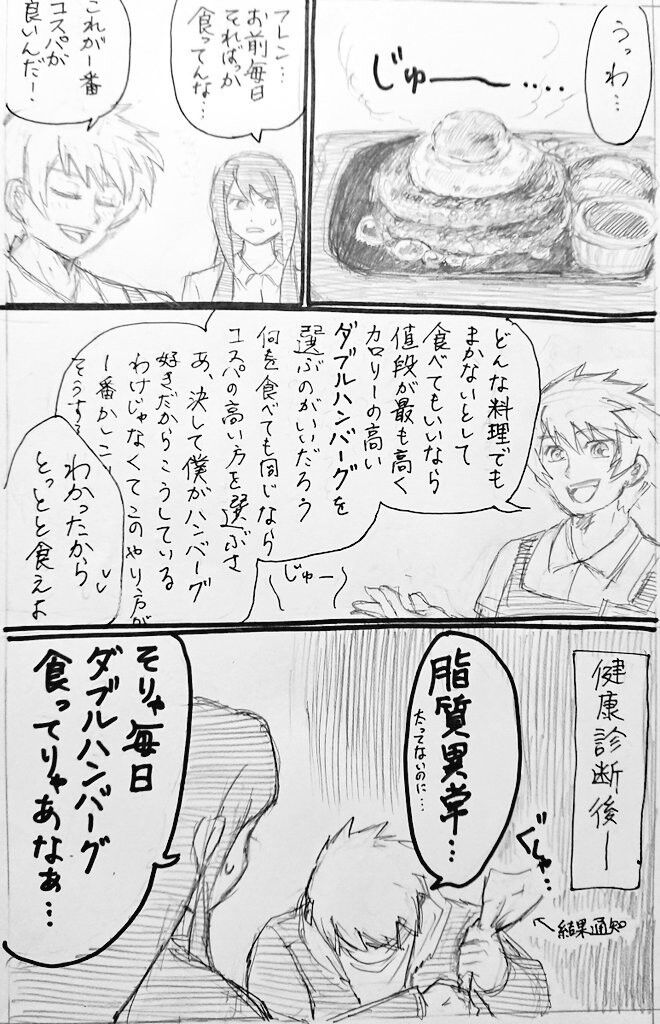 うっわ…
じゅーー‥‥
フレン…
お前毎日
そればっか
食ってんな…
これが一番
コスパが
良いんだー!
どんな料理でも
まかないとして
食べてもいいなら
値段が最も高く
カロリーの高い
ダブルハンバーグを
選ぶのがいいだろう
何を食べても同じなら
コスパの高い方を選ぶさ
あ、決して僕がハンバーグ
好きだからこうしている
わけじゃなくてこのやり方が
一番かしこ
そうする
じゅー
わかったから
とっとと食えよ
健康診断後ー
脂質異常…
太ってないのに…
ぐしゃ…
←結果通知
そりゃ毎日
ダブルハンバーグ
食ってりゃあなぁ…